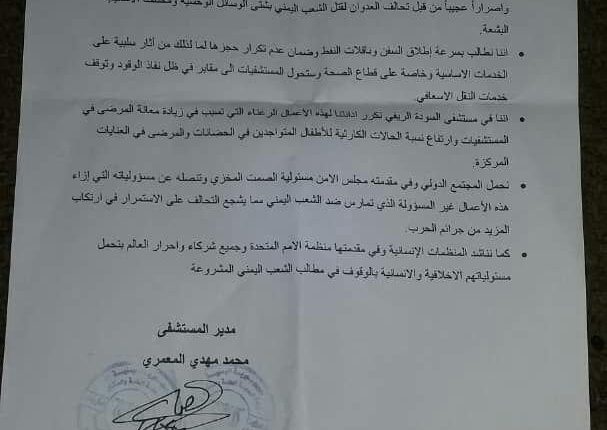 واصراراً عجيباً من قبل تحالف العدوان لقتل الشعب اليمني بشتى الوسائل الوحشية
البشعة.
• اننا نطالب بسرعة إطلاق السفن وناقلات النفط وضمان عدم تكرار حجزها لما لذلك من آثار سلبية على
الخدمات الاساسية وخاصة على قطاع الصحة وستحول المستشفيات الى مقابر في ظل نفاذ الوقود وتوقف
خدمات النقل الاسعافي.
• اننا في مستشفى السودة الريفي نكرر ادانتنا لهذه الأعمال الرعناء التي تسبب في زيادة معاناة المرضى في
المستشفيات وارتفاع نسبة الحالات الكارثية للأطفال المتواجدين في الحضانات والمرضى في العنايات
المركزة.
• نحمل المجتمع الدولي وفي مقدمته مجلس الامن مسئولية الصمت المخزي وتنصله عن مسؤولياته التي إزاء
هذه الأعمال غير المسؤولة الذي تمارس ضد الشعب اليمني مما يشجع التحالف على الاستمرار في ارتكاب
المزيد من جرائم الحرب.
• كما نناشد المنظمات الإنسانية وفي مقدمتها منظمة الامم المتحدة وجميع شركاء واحرار العالم بتحمل
مسئولياتهم الاخلاقية والانسانية بالوقوف في مطالب الشعب اليمني المشروعة
مدير المستشفى
محمد مهدي المعمري